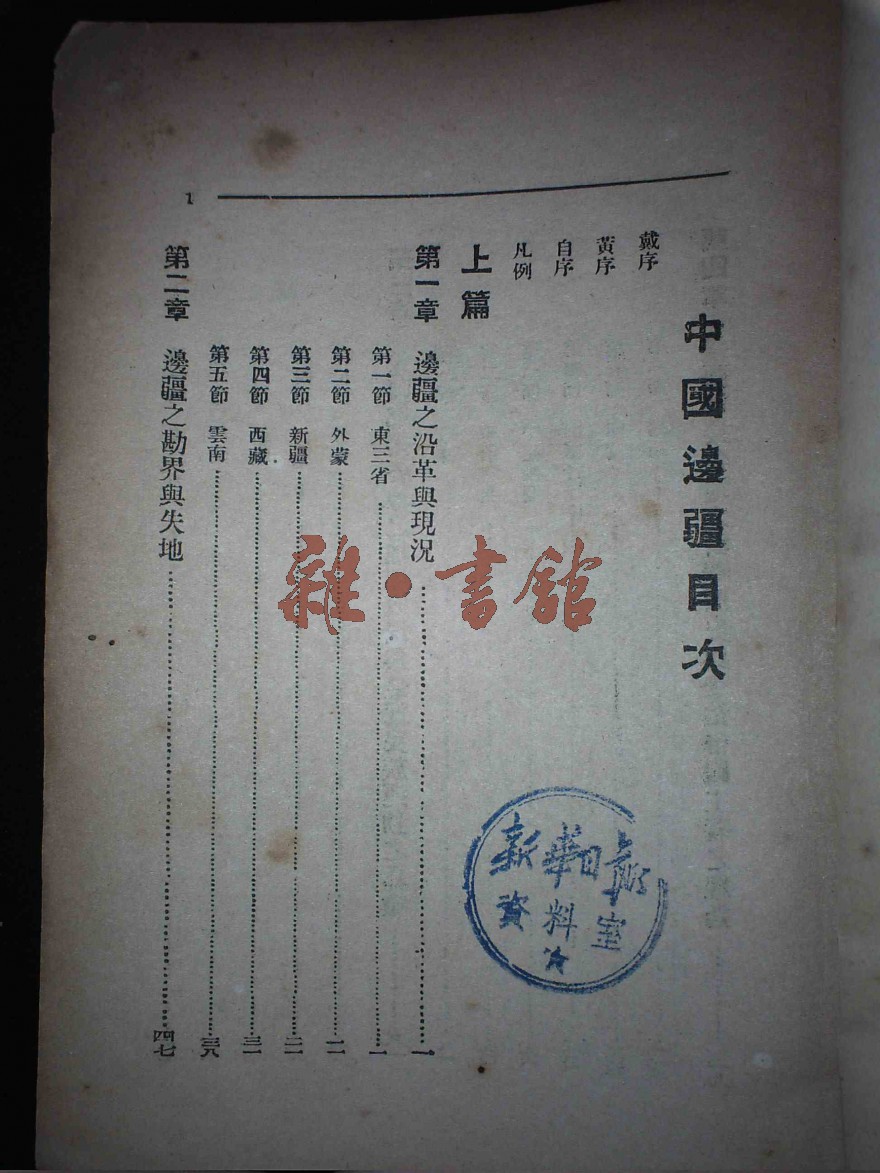 中國邊疆目次
戴序
黃序
自序
凡例
上篇
第一章 邊疆之沿革與現況……一
第一節 東三省……一
第二節 外蒙……一一
第三節 新疆……二一
第四節 西藏……三一
第五節 雲南……三八
第二章 邊疆之勘界與失地……四七
1
雜·書館
新華日報
資料室